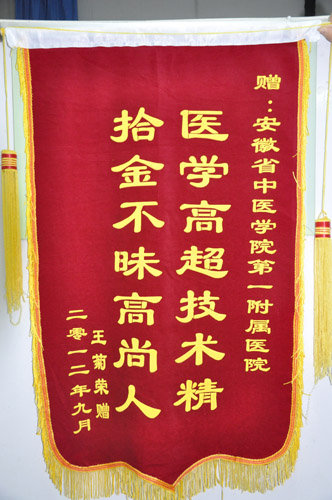 赠：安徽省中医学院第一附属医院
医学高超技术精
拾金不昧高尚人
王菊荣赠
二零一二年九月